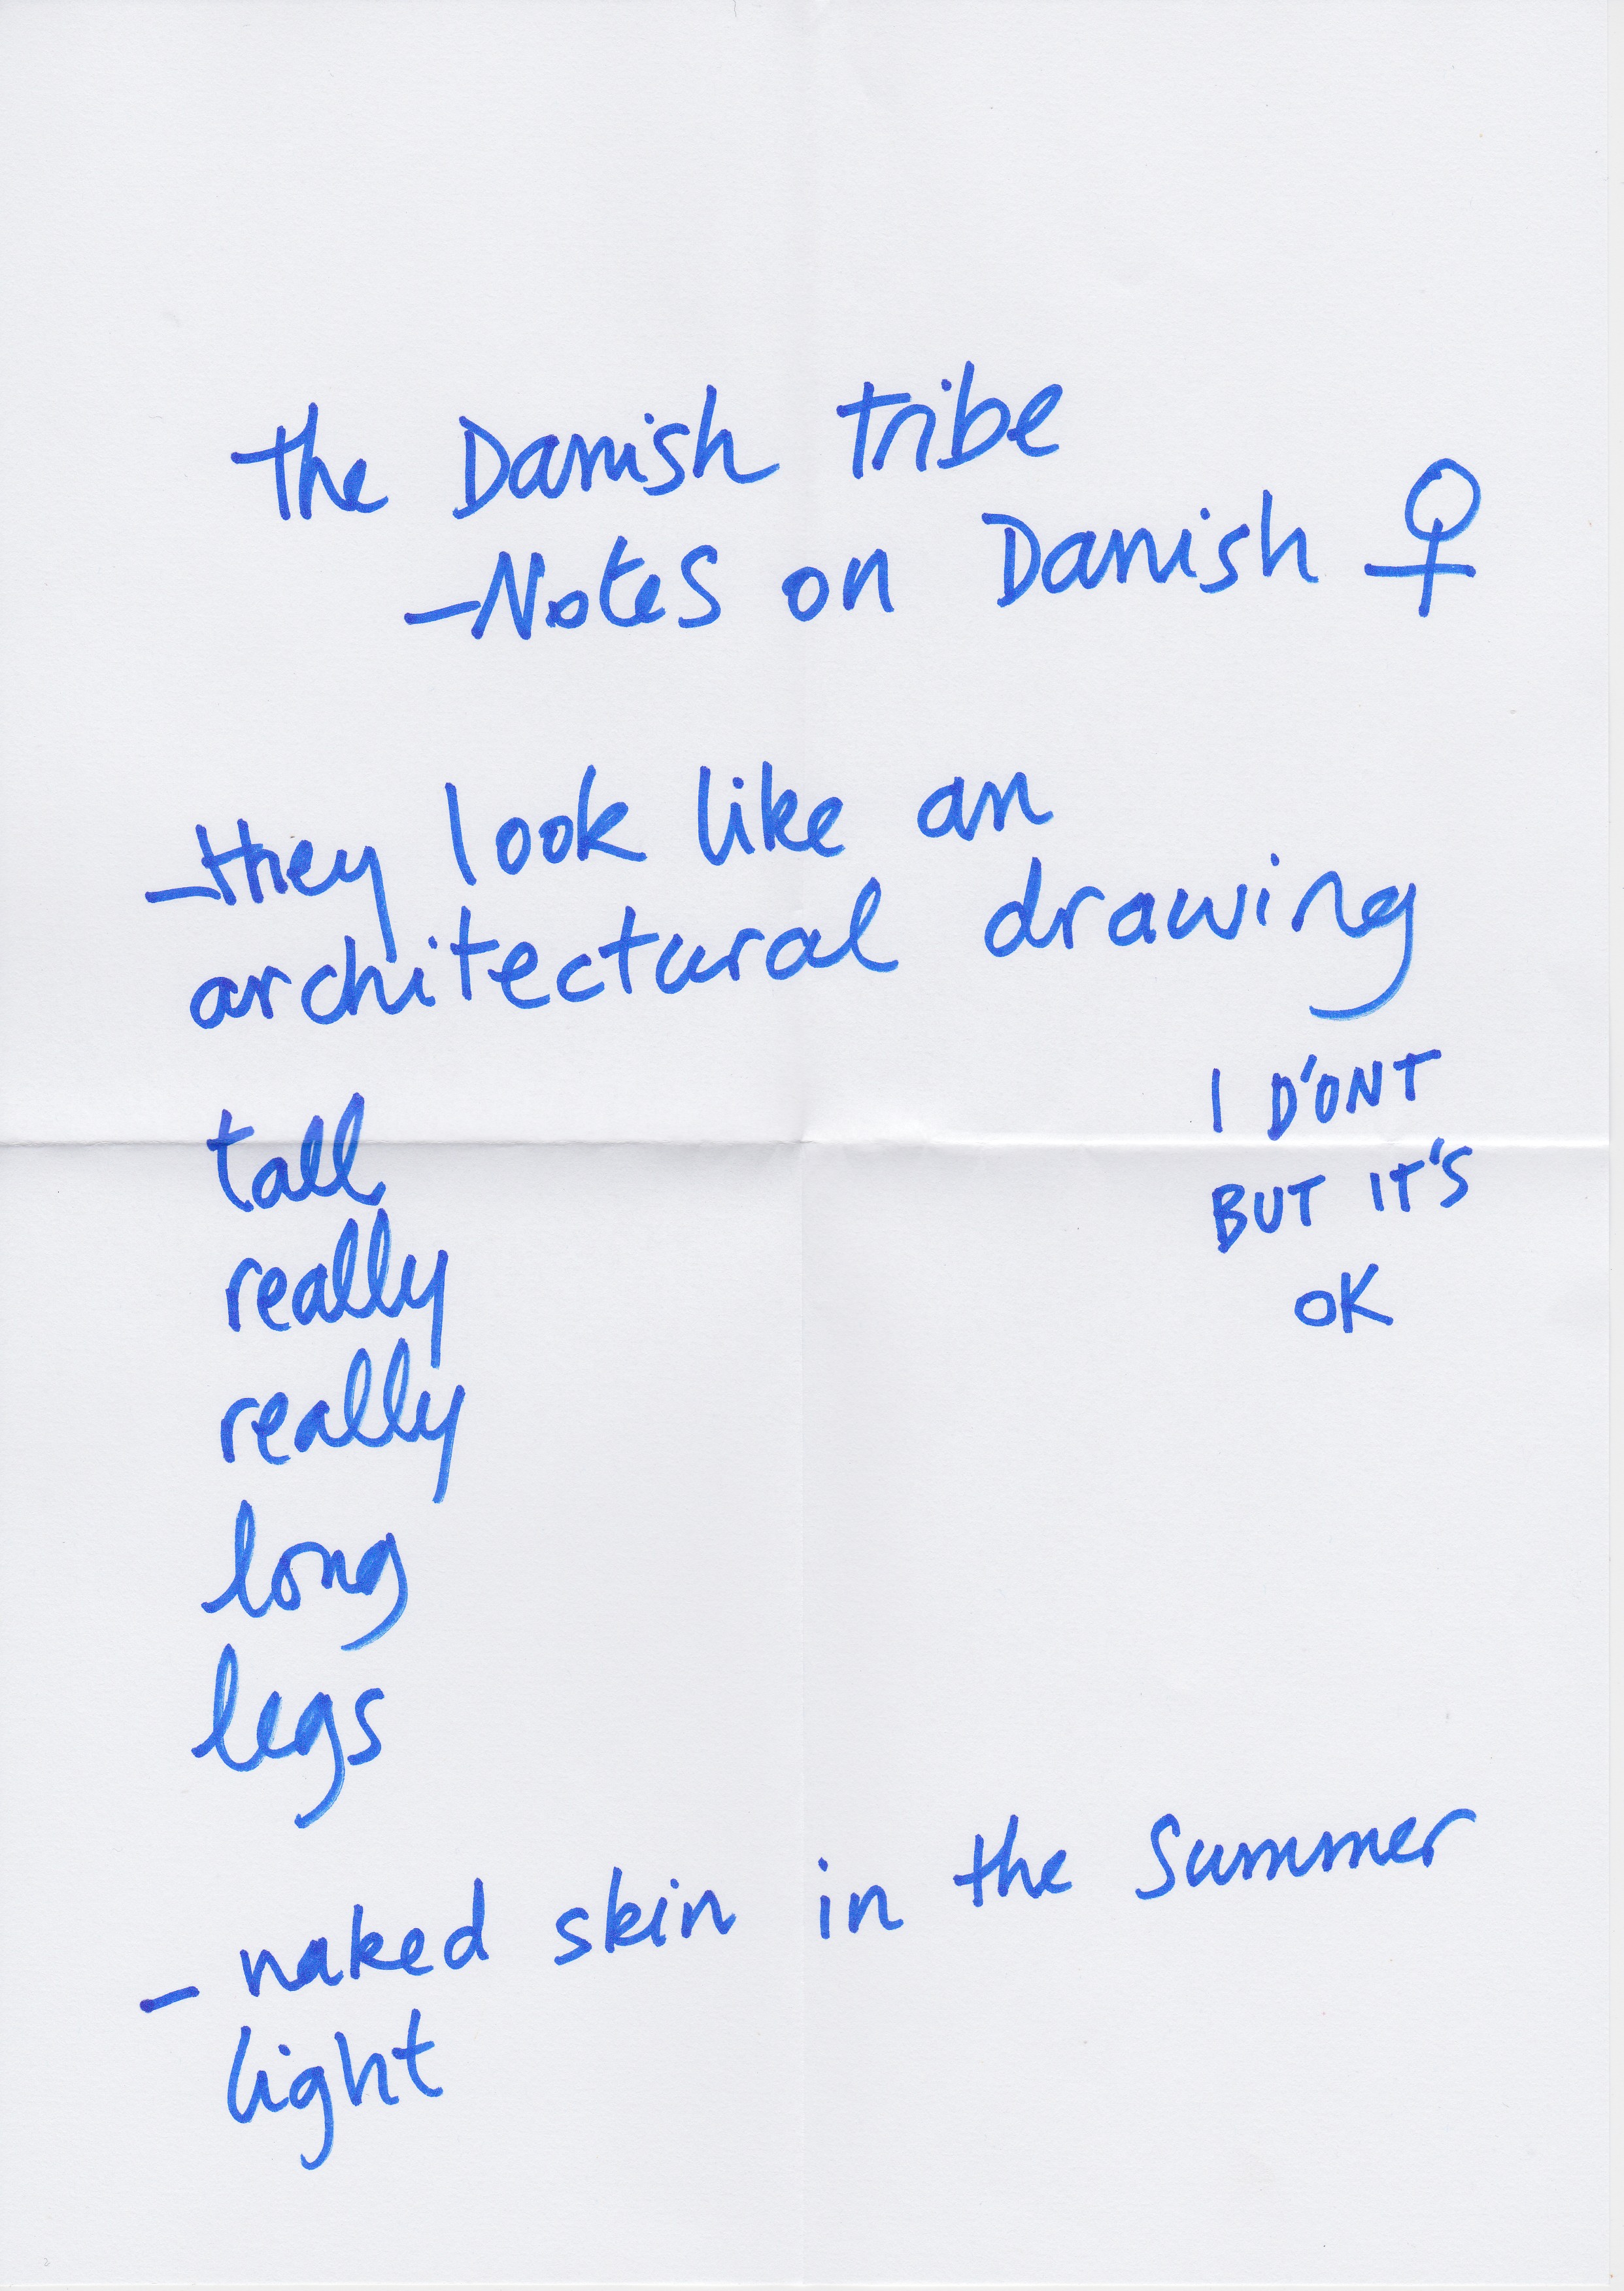 the Danish tribe
-Notes on Danish ♀
-they look like an
architectural drawing
I D'ONT
BUT IT'S
OK
tall
really
really
long
legs
- naked skin in the Summer
light